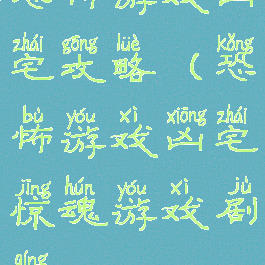 zhái gōng lüè kǒng
宅攻略（恐
bù yóu xì xiōng zhái
怖游戏凶宅
jīng hún yóu xì jù
惊魂游戏剧
qíng